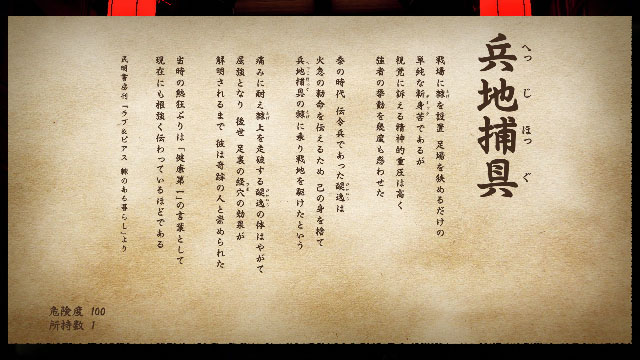 兵地捕具
へっじほっぐ
戦場に棘を設置 足場を狭めるだけの
単純な斬身苦であるが
視覚に訴える精神的重圧は高く
強者の挙動を幾度も惑わせた
秦の時代 伝令兵であった醍逸は
火急の勅命を伝えるため 己の身を捨て
兵地捕具の棘に乗り戦地を駆けたという
痛みに耐え棘上を走破する醍逸の体はやがて
屈強となり 後世 足裏の経穴の効果が
解明されるまで 彼は奇跡の人と崇められた
当時の熱狂ぶりは「健康第一」の言葉として
現在にも根強く伝わっているほどである
民明書房刊「ラブ&ピアス 棘のある暮らし」より
危険度 100
所持数 1